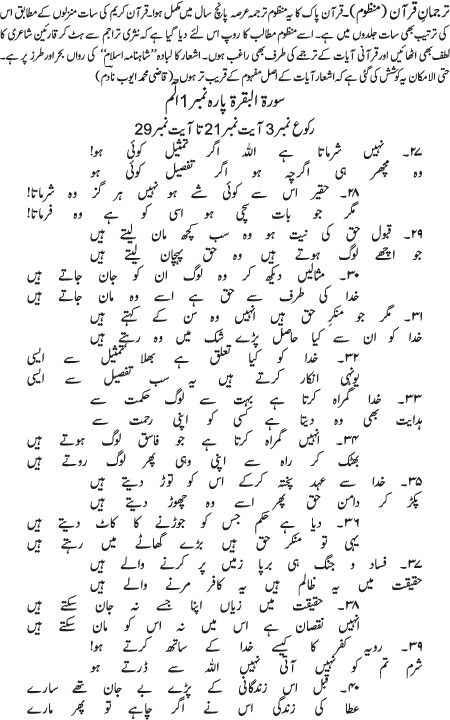 ترجمانِ قرآن (منظوم)۔ قرآن پاک کا یہ منظوم ترجمہ عرصہ پانچ سال میں مکمل ہوا۔ قرآن کریم کی سات منزلوں کے مطابق اس
کی ترتیب بھی سات جلدوں میں ہے۔ اسے منظوم مطالب کا روپ اس لئے دیا گیا ہے کہ نثری تراجم سے ہٹ کر قارئین شاعری کا
لطف بھی اٹھائیں اور قرآنی آیات کے ترجمے کی طرف بھی راغب ہوں۔ اشعار کا لبادہ ’’شاہنامہ اسلام‘‘ کی رواں بحر اور طرز پر ہے۔
حتی الامکان یہ کوشش کی گئی ہے کہ اشعار آیات کے اصل مفہوم کے قریب تر ہوں (قاضی محمد ایوب نادم)
سورۃ البقرۃ پارہ نمبر 1 الٓمٓ
رکوع نمبر 3 آیت نمبر 21 تا آیت نمبر 29
۲۷۔ نہیں شرماتا ہے اللہ اگر تمثیل کوئی ہو!
وہ مچھر ہی اگرچہ ہو اگر تفصیل کوئی ہو
۲۸۔ حقیر اس سے کوئی شے ہو نہیں ہر گز وہ شرماتا!
مگر جو بات سچی ہو اسی کو ہے وہ فرماتا!
۲۹۔ قبول حق کی نیت ہو وہ سب کچھ مان لیتے ہیں
جو اچھے لوگ ہوتے ہیں وہ حق پہچان لیتے ہیں
۳۰۔ مثالیں دیکھ کر وہ لوگ ان کو جان جاتے ہیں
خدا کی طرف سے حق ہے اسے وہ مان جاتے ہیں
۳۱۔ مگر جو منکرِ حق ہیں انہیں وہ سن کے کہتے ہیں
خدا کو ان سے کیا حاصل پڑے شک میں وہ رہتے ہیں
۳۲۔ خدا کو کیا تعلق ہے بھلا تمثیل سے ایسی
یونہی انکار کرتے ہیں یہ سب تفصیل سے ایسی
۳۳۔ خدا گمراہ کرتا ہے بہت سے لوگ حکمت سے
ہدایت بھی وہ دیتا ہے کسی کو اپنی رحمت سے
۳۴۔ انہیں گمراہ کرتا ہے جو فاسق لوگ ہوتے ہیں
بھٹک کر راہ سے اپنی وہی پھر لوگ روتے ہیں
۳۵۔ خدا سے عہد پختہ کرکے اس کو توڑ دیتے ہیں
پکڑ کر دامن حق پھر اسے وہ چھوڑ دیتے ہیں
۳۶۔ دیا ہے حکم جس کو جوڑنے کا کاٹ دیتے ہیں
یہی تو منکر حق ہیں بڑے گھاٹے میں رہتے ہیں
۳۷۔ فساد و جنگ ہی برپا زمیں پر کرنے والے ہیں
حقیقت میں یہ ظالم ہیں یہ کافر مرنے والے ہیں
۳۸۔ حقیقت میں زیاں اپنا جسے نہ جان سکتے ہیں
انہیں نقصان ہے اس میں نہ اس کو مان سکتے ہیں
۳۹۔ رویہ کفر کا کیسے خدا کے ساتھ کرتے ہو!
شرم تم کو نہیں آتی نہیں اللہ سے ڈرتے ہو
۴۰۔ قبل اس زندگانی کے پڑے بے جان تھے سارے
عطا کی زندگی اس نے اگر چاہے تو پھر مارے